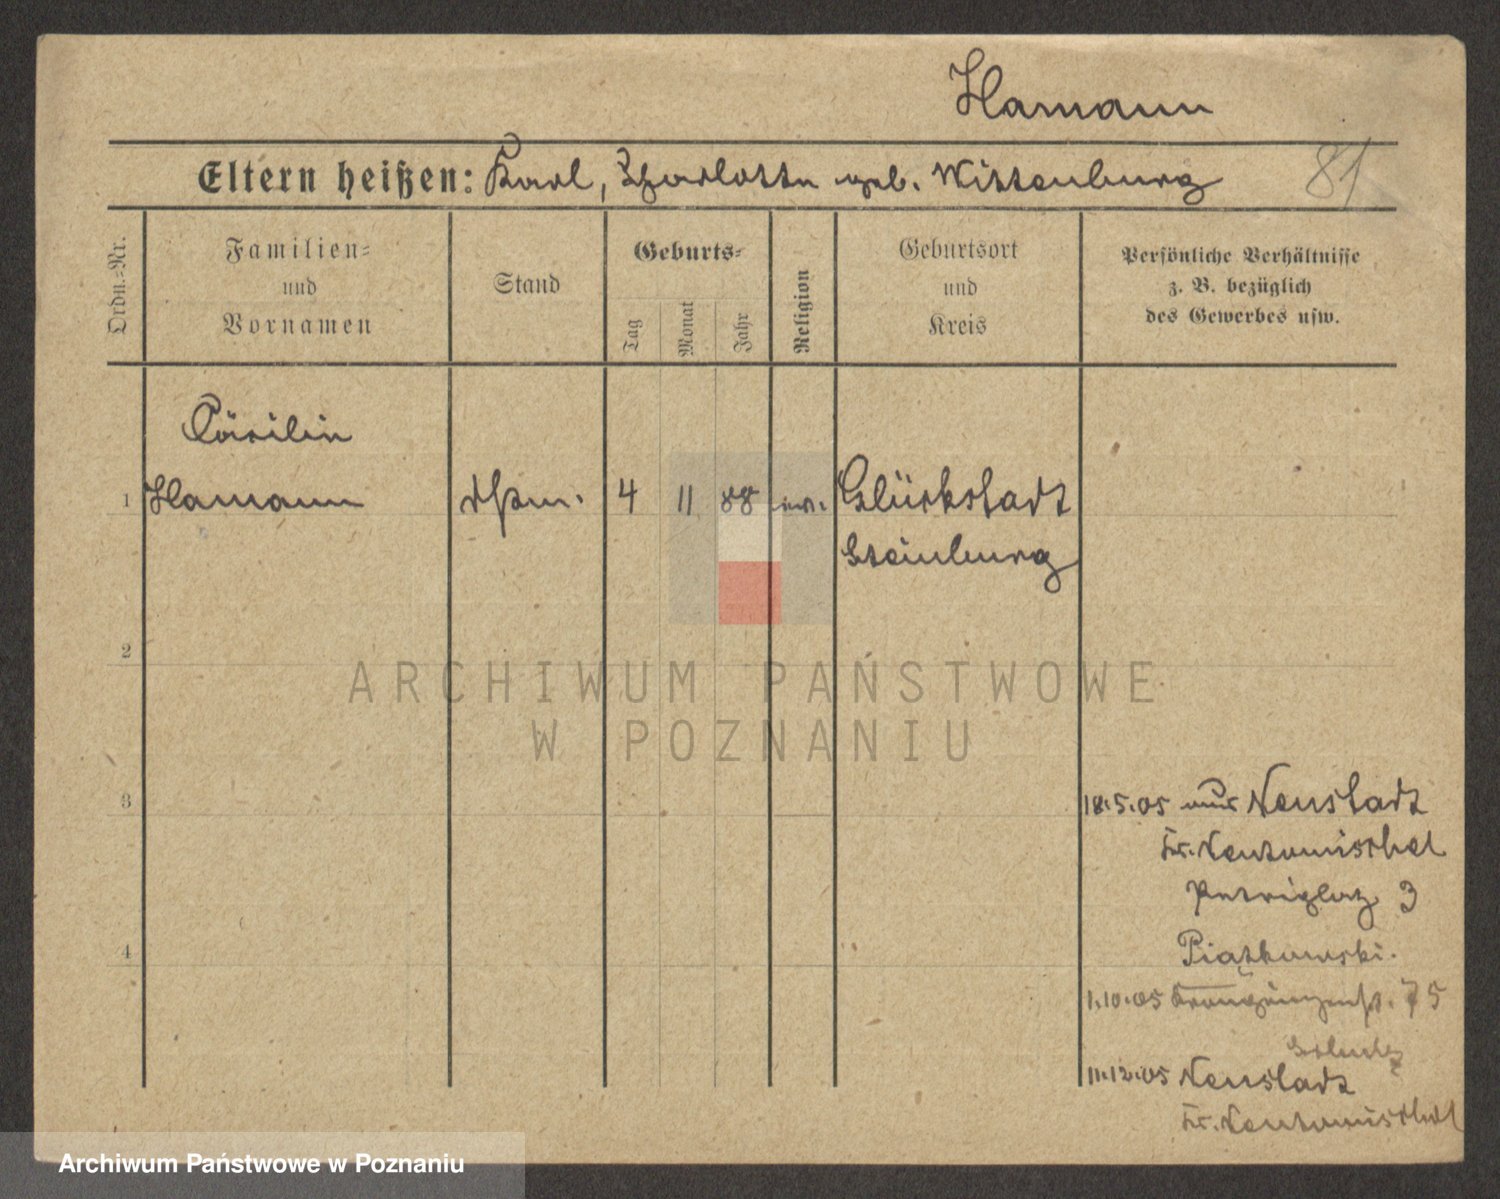 Hamann
Eltern heißen: Karl, Charlotte geb. Wittenburg 81
Ordn.=Nr.
Familien=
und
Vornamen
Stand
Geburts=
Tag
Monat
Jahr
Religion
Geburtsort
und
Kreis
Persönliche Verhältnisse
z. B. bezüglich
des Gewerbes usw.
Cäcilie
1 Hamann 4 11 88 ev. Glückstadt
Steinburg
2
3
18.5.05 aus Neustadt
Kr. Neutomischel
Petriplatz 3
Piątkowski.
4
1.10.05 Kronprinzenst. 75
11.12.05 Neustadt
Kr. Neutomischel
ARCHIWUM PAŃSTWOWE
W POZNANIU
Archiwum Państwowe w Poznaniu